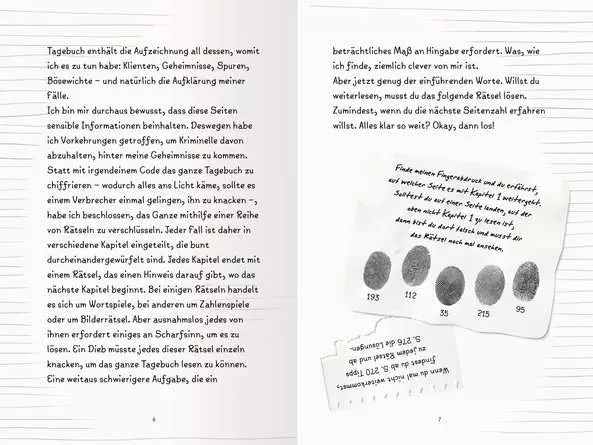 Tagebuch enthält die Aufzeichnung all dessen, womit
ich es zu tun habe: Klienten, Geheimnisse, Spuren,
Bösewichte – und natürlich die Aufklärung meiner
Fälle.
Ich bin mir durchaus bewusst, dass diese Seiten
sensible Informationen beinhalten. Deswegen habe
ich Vorkehrungen getroffen, um Kriminelle davon
abzuhalten, hinter meine Geheimnisse zu kommen.
Statt mit irgendeinem Code das ganze Tagebuch zu
chiffrieren – wodurch alles ans Licht käme, sollte es
einem Verbrecher einmal gelingen, ihn zu knacken –,
habe ich beschlossen, das Ganze mithilfe einer Reihe
von Rätseln zu verschlüsseln. Jeder Fall ist daher in
verschiedene Kapitel eingeteilt, die bunt
durcheinandergewürfelt sind. Jedes Kapitel endet mit
einem Rätsel, das einen Hinweis darauf gibt, wo das
nächste Kapitel beginnt. Bei einigen Rätseln handelt
es sich um Wortspiele, bei anderen um Zahlenspiele
oder um Bilderrätsel. Aber ausnahmslos jedes von
ihnen erfordert einiges an Scharfsinn, um es zu
lösen. Ein Dieb müsste jedes dieser Rätsel einzeln
knacken, um das ganze Tagebuch lesen zu können.
Eine weitaus schwierigere Aufgabe, die ein
6
beträchtliches Maß an Hingabe erfordert. Was, wie
ich finde, ziemlich clever von mir ist.
Aber jetzt genug der einführenden Worte. Willst du
weiterlesen, musst du das folgende Rätsel lösen.
Zumindest, wenn du die nächste Seitenzahl erfahren
willst. Alles klar so weit? Okay, dann los!
Finde meinen Fingerabdruck und du erfährst,
auf welcher Seite es mit Kapitel 1 weitergeht.
Solltest du auf einer Seite landen, auf der
aber nicht Kapitel 1 zu lesen ist,
dann bist du dort falsch und musst dir
das Rätsel noch mal ansehen.
193
112
35
215
95
Wenn du mal nicht weiterkommst,
findest du ab S. 270 Tipps
zu jedem Rätsel und ab
S. 276 die Lösungen.
7